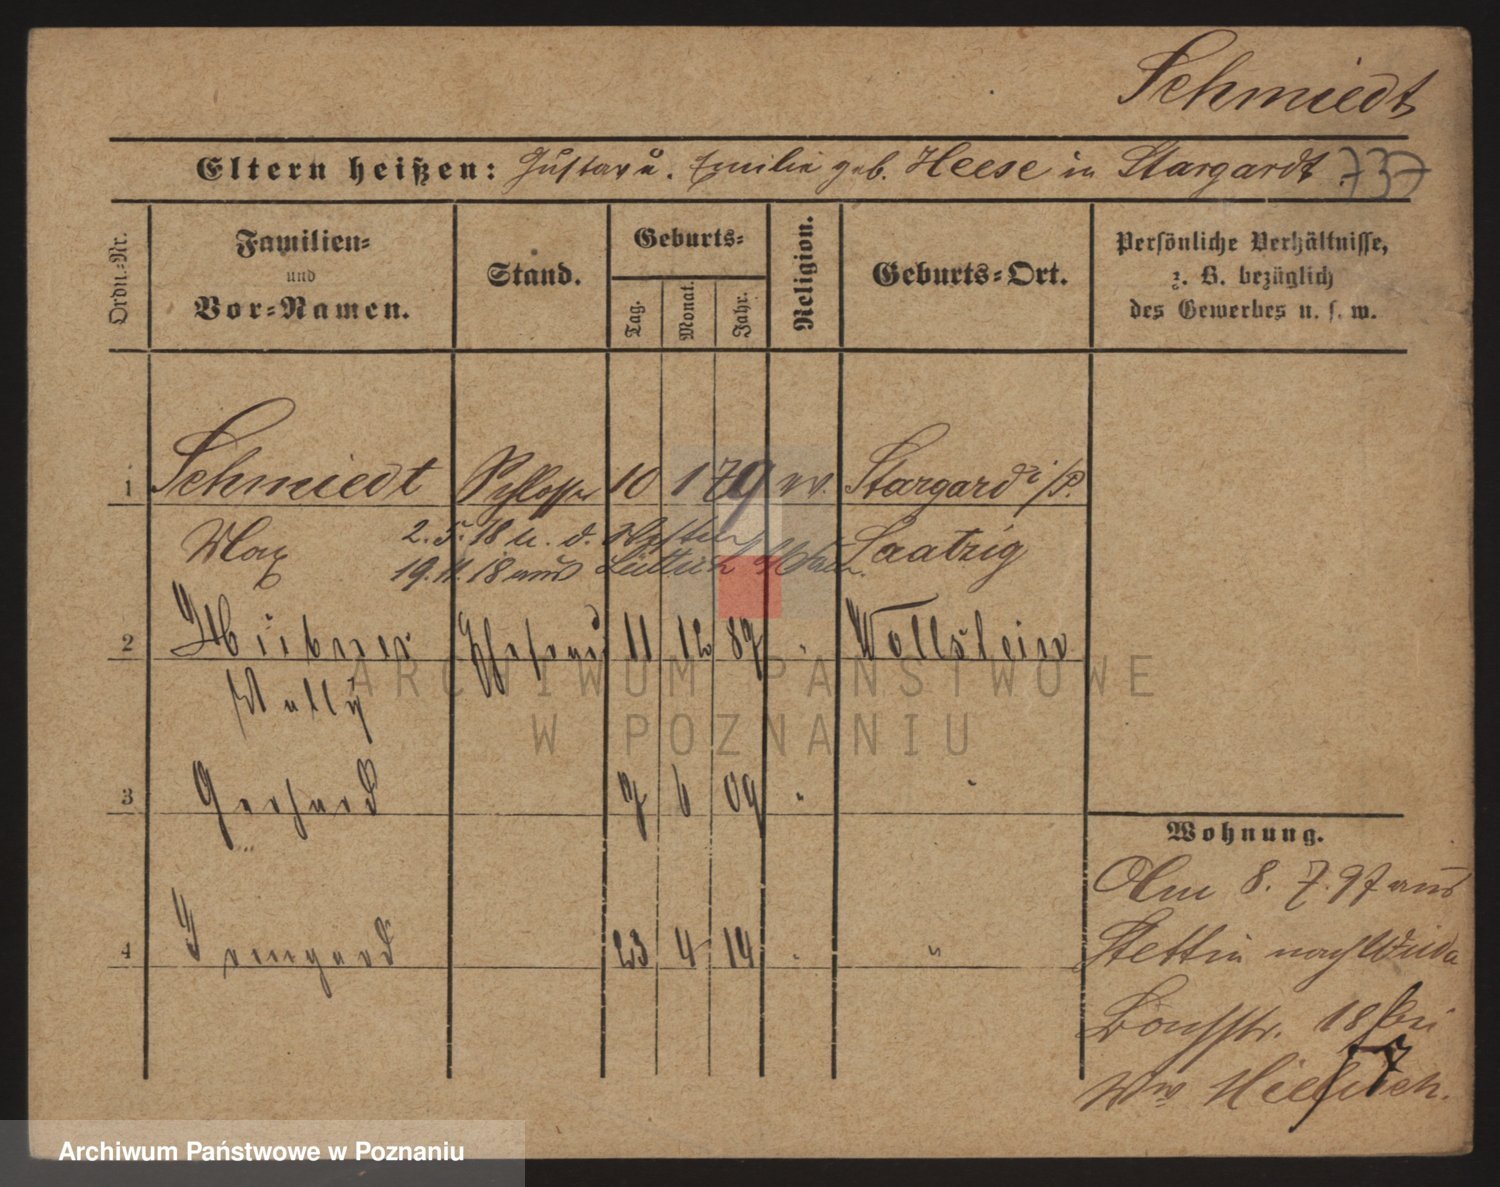 Schmiedt
Eltern heißen: Gustav u. Emilie geb. Heese in Stargardt 737
Ordn.-Nr.
Familien-
und
Vor-Namen.
Stand.
Geburts-
Tag.
Monat.
Jahr.
Religion.
Geburts-Ort.
Persönliche Verhältnisse,
z. B. bezüglich
des Gewerbes u. s. w.
1 Schmiedt Schlosser 10 1 79 ev. Stargard i/P.
Max 2. 5. 18 u. d. Saatzig
19. 11. 18 aus Lüttich
2 Hübner Ehefrau 11 12 87 " Wollstein
Wally
3 Gerhard 7 6 09 " "
4 Irmgard 23 4 14 " "
Wohnung.
8. 7. 97 aus
Stettin nach Wilda
18 bei
Ww
ARCHIWUM PAŃSTWOWE
W POZNANIU
Archiwum Państwowe w Poznaniu